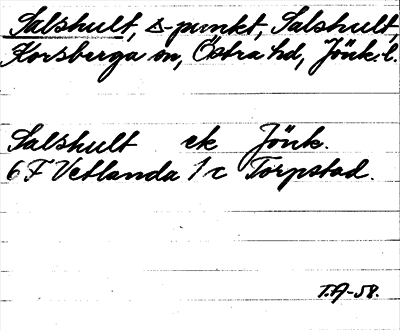 Salshult, ∆-punkt, Salshult,
Korsberga sn, Östra hd, Jönk. l.
Salshult ek Jönk.
6 F Vetlanda 1 c Torpstad.
T.A-58.